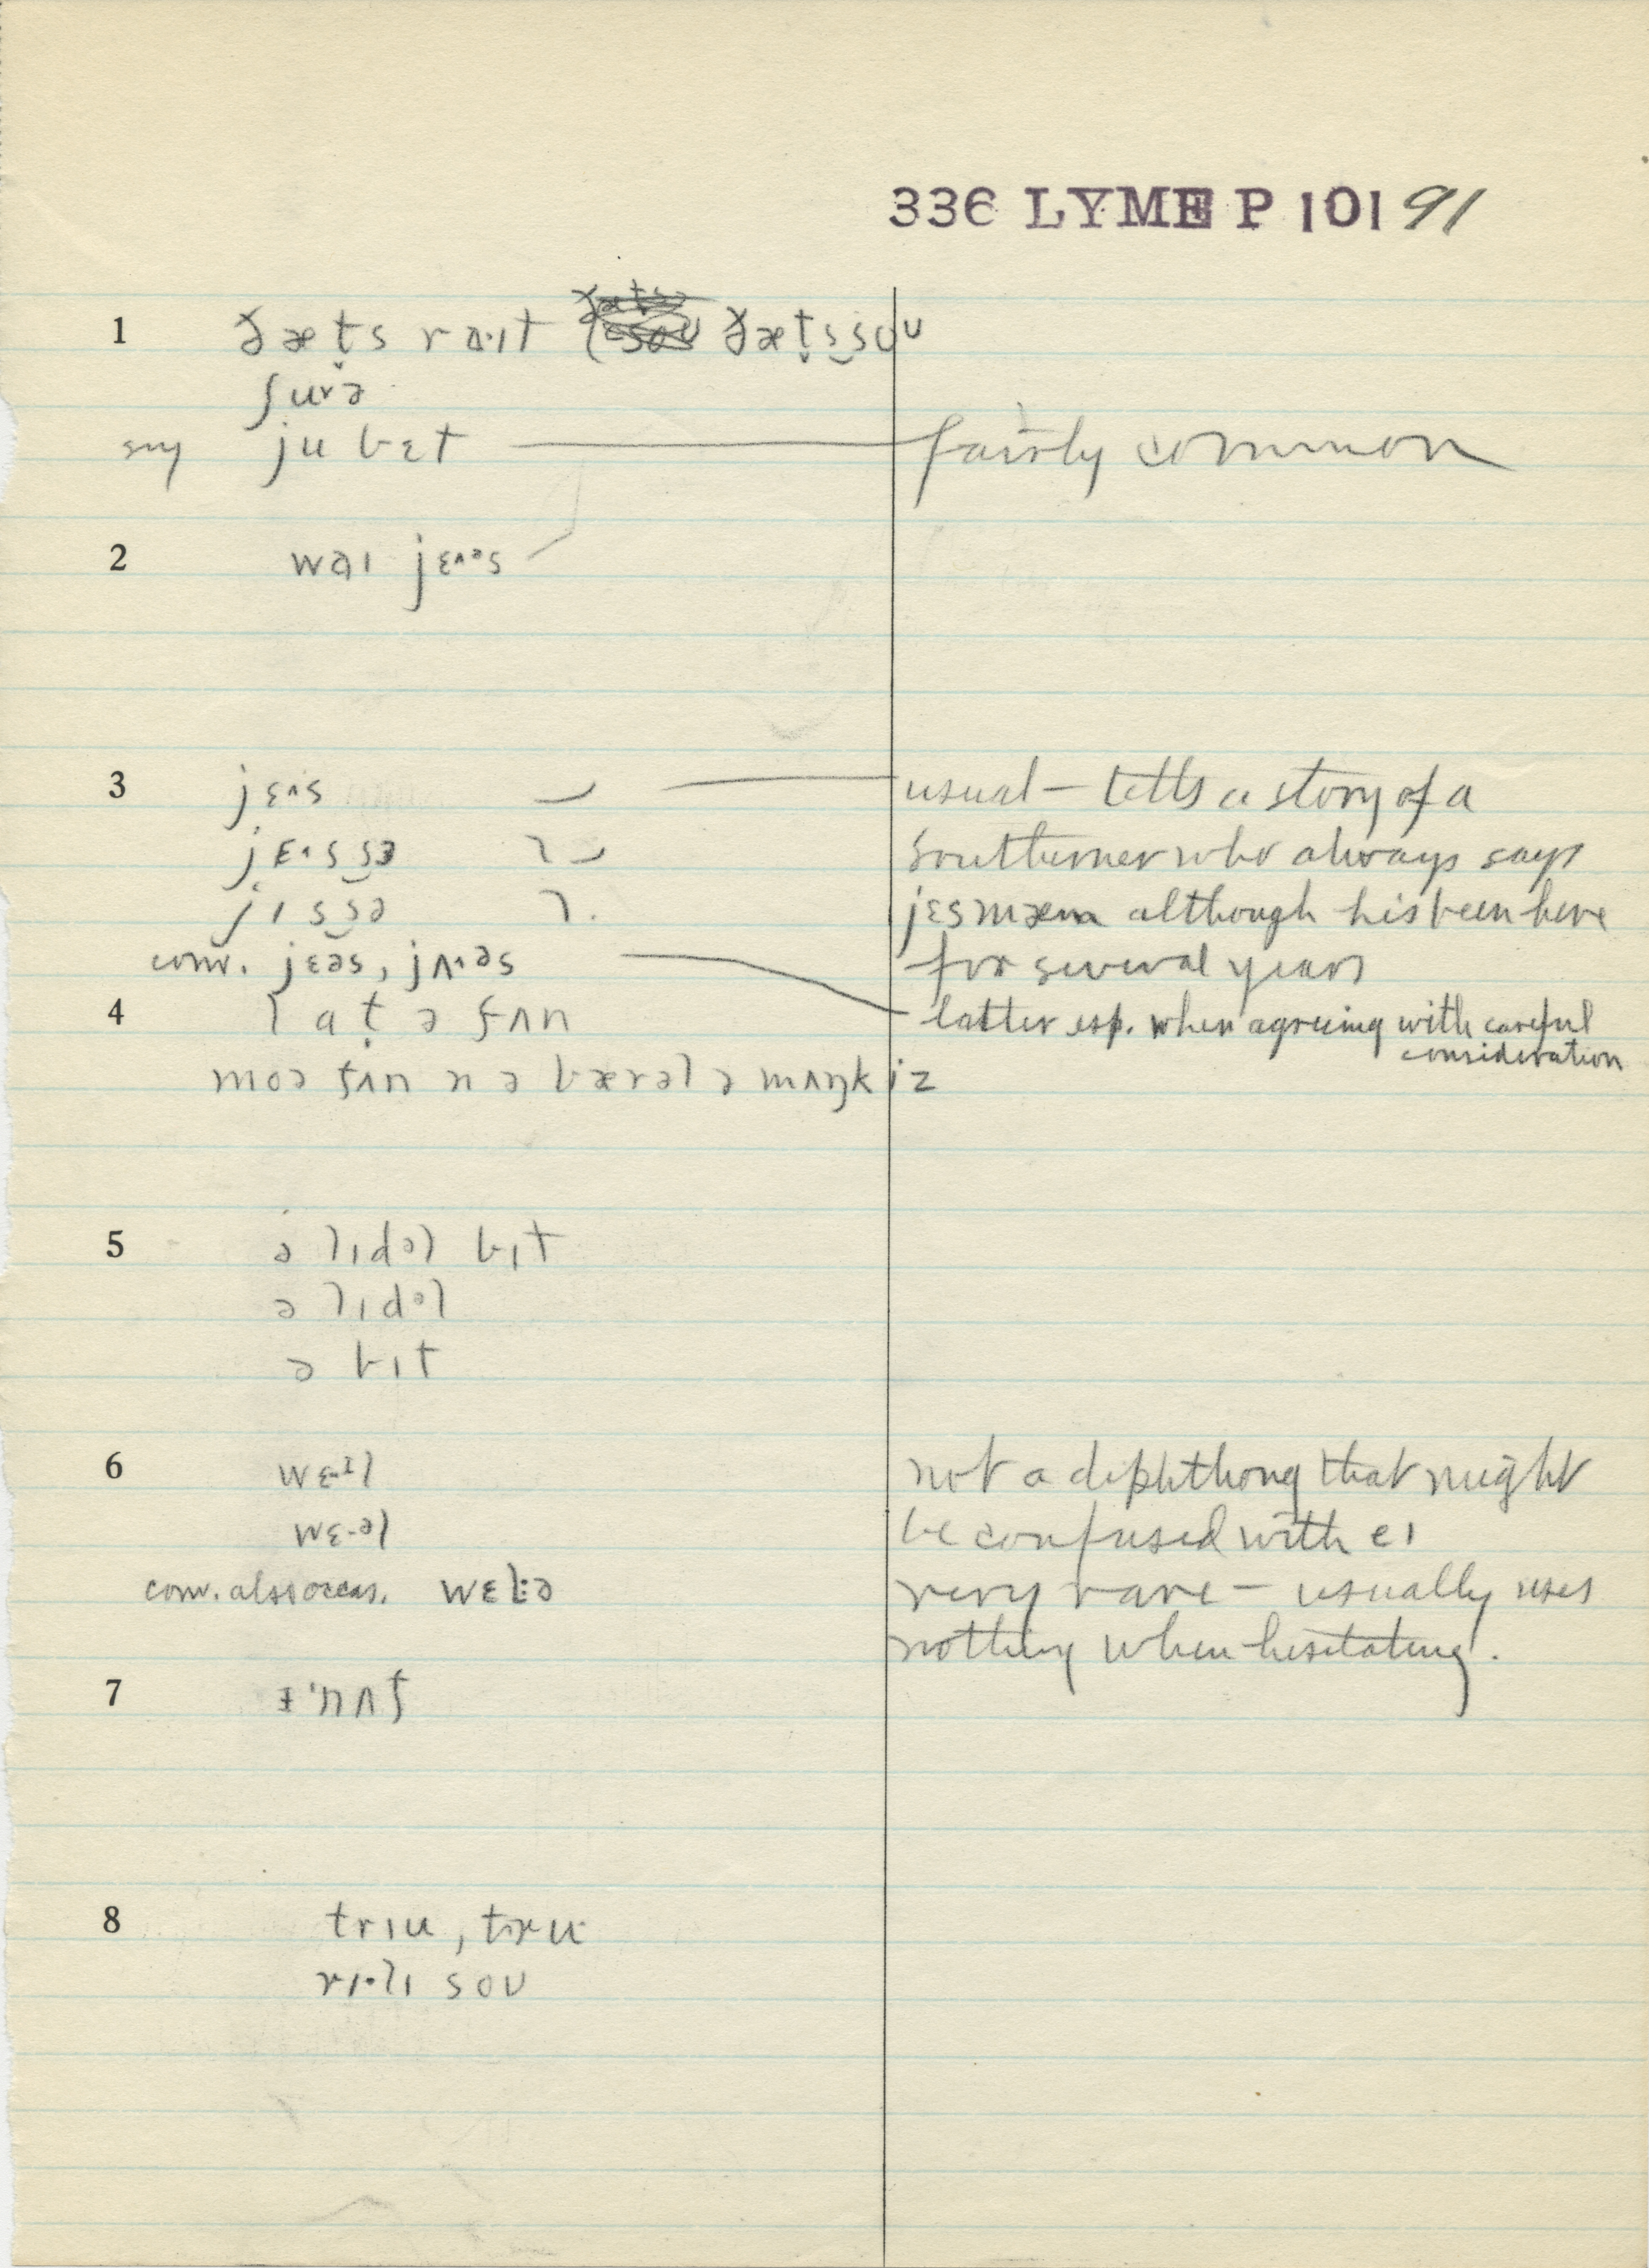 336 LYME P 101 91
1 ðæt̬s rɑ·ɪt ðæt̬s‿soʊ
ʃurə
sug ju bɛt — fairly common
2 wɑɪ jɛ^əs
3 jɛ^s — usual — tells a story of a
jɛ^s‿sɜ southerner who always says
jɪs‿sə jɛsmæm although his been here
conv. jɛəs, jʌ·əs for several years
4 lɑt̬ ə fʌn latter esp. when agreeing with careful
consideration
moə fʌn n ə bærəl ə mʌŋkiz
5 ə lɪdəl bɪt
ə lɪdəl
ə bɪt
6 wɛ·ɪl not a diphthong that might
wɛ·əl be confused with eɪ
conv. also occas. wɛl:ə very rare — usually uses
nothing when hesitating.
7 ɪ'nʌf
8 trɪu, tru·
rɪ·lɪ soʊ